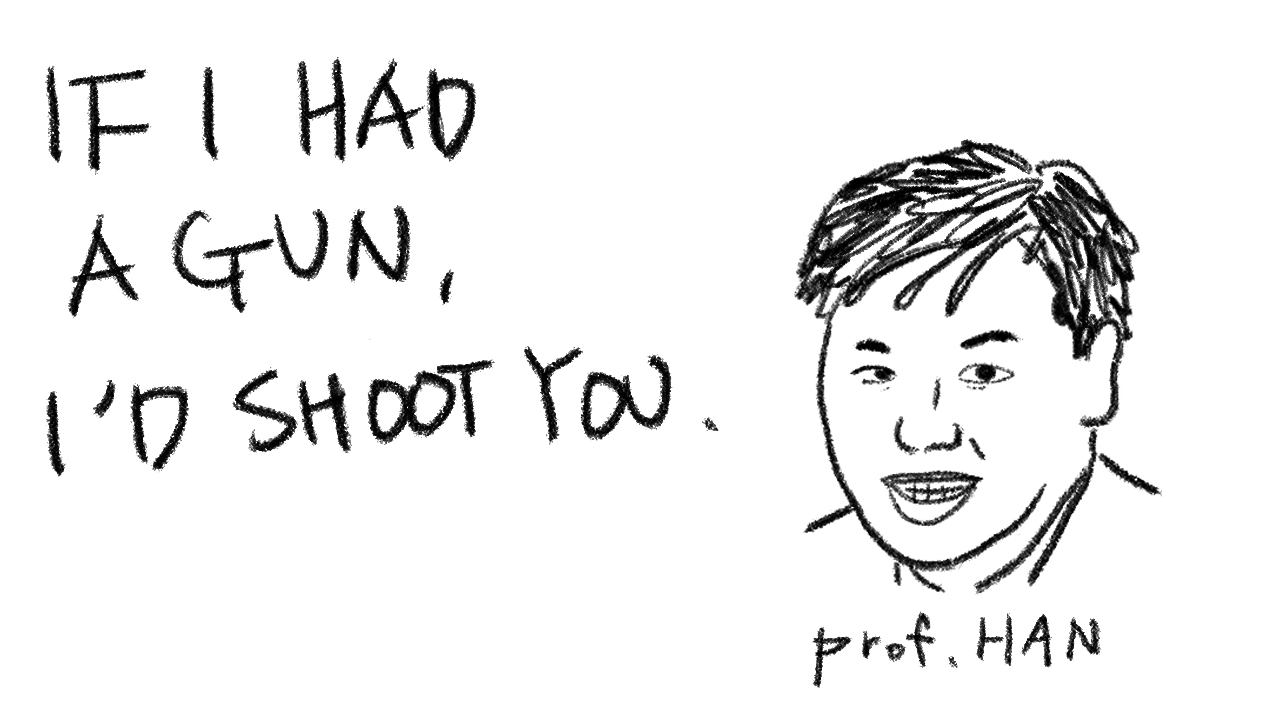 IF I HAD
A GUN,
I'D SHOOT YOU.
prof. HAN